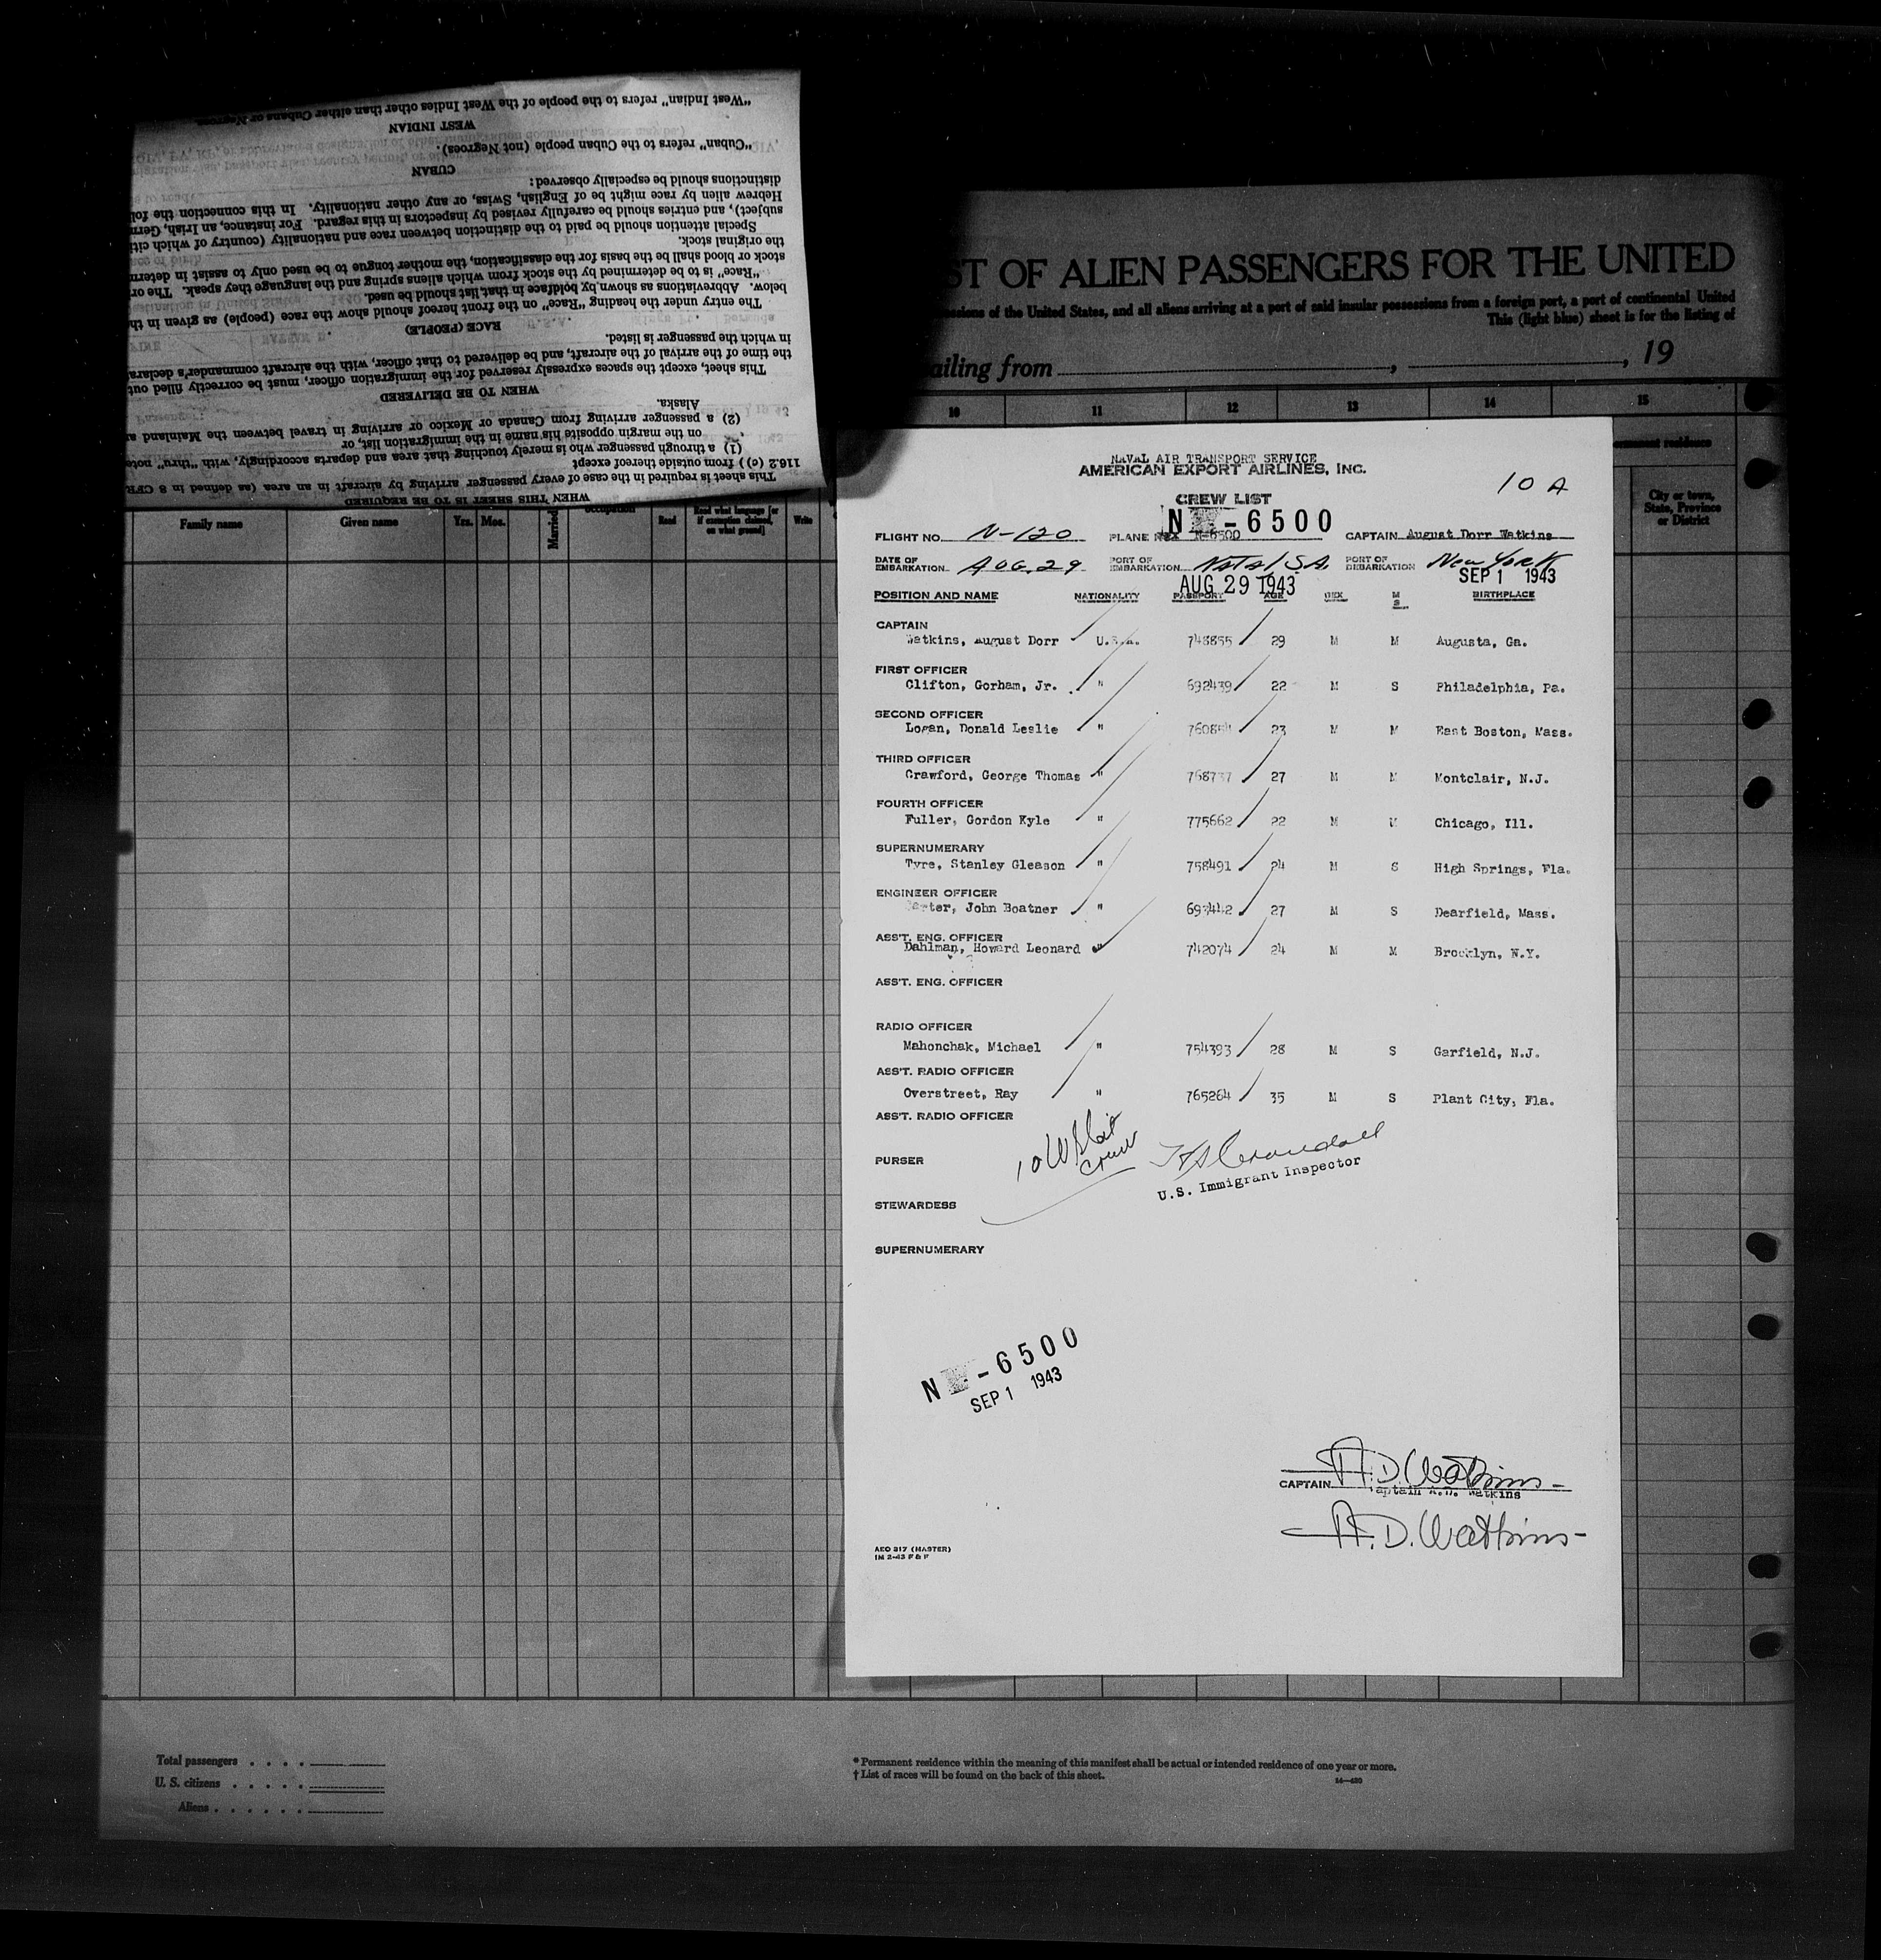 "West Indian" refers to the people of the West Indies other than either Cubans or Negroes.
WEST INDIAN
"Cuban" refers to the Cuban people (not Negroes).
CUBAN
distinctions should be especially observed:
Hebrew alien by race might be of English, Swiss, or any other nationality. In this connection the fol
subject), and entries should be carefully revised by inspectors in this regard. For instance, an Irish, Germ
Special attention should be paid to the distinction between race and nationality (country of which citi
the original stock.
stock or blood shall be the basis for the classification, the mother tongue to be used only to assist in determ
"Race" is to be determined by the stock from which aliens spring and the language they speak. The or
below. Abbreviations as shown by boldface in that list should be used.
The entry under the heading "Race" on the front hereof should show the race (people) as given in th
RACE (PEOPLE)
in which the passenger is listed.
the time of the arrival of the aircraft, and be delivered to that officer, with the aircraft commander's declara
This sheet, except the spaces expressly reserved for the immigration officer, must be correctly filled out
WHEN TO BE DELIVERED
Alaska.
(2) a passenger arriving from Canada or Mexico or arriving in travel between the Mainland a
on the margin opposite his name in the immigration list, or
(1) a through passenger who is merely touching that area and departs accordingly, with "thru" note
116.2 (c)) from outside thereof except
This sheet is required in the case of every passenger arriving by aircraft in an area (as defined in 8 CFR
WHEN THIS SHEET IS TO BE REQUIRED
ST OF ALIEN PASSENGERS FOR THE UNITED
ssions of the United States, and all aliens arriving at a port of said insular possessions from a foreign port, a port of continental United
This (light blue) sheet is for the listing of
ailing from , , 19
10 11 12 13 14 15
Family name Given name Yrs. Mos. Married occupation Read Read what language [or if exemption claimed, on what ground] Write
ermanent residence
City or town, State, Province or District
NAVAL AIR TRANSPORT SERVICE
AMERICAN EXPORT AIRLINES, INC.
10 A
CREW LIST
N -6500
FLIGHT NO. N-120 PLANE N-6500 CAPTAIN August Dorr Watkins
DATE OF EMBARKATION AUG. 29 PORT OF EMBARKATION Natal S.A. PORT OF DEBARKATION New York
AUG 29 1943 SEP 1 1943
POSITION AND NAME NATIONALITY PASSPORT AGE SEX M S BIRTHPLACE
CAPTAIN
Watkins, August Dorr U.S.A. 748855 29 M M Augusta, Ga.
FIRST OFFICER
Clifton, Gorham, Jr. " 692439 22 M S Philadelphia, Pa.
SECOND OFFICER
Logan, Donald Leslie " 23 M M East Boston, Mass.
THIRD OFFICER
Crawford, George Thomas " 768737 27 M M Montclair, N.J.
FOURTH OFFICER
Fuller, Gordon Kyle " 775662 22 M M Chicago, Ill.
SUPERNUMERARY
Tyre, Stanley Gleason " 758491 24 M S High Springs, Fla.
ENGINEER OFFICER
John Boatner " 693442 27 M S Dearfield, Mass.
ASS'T. ENG. OFFICER
Dahlman, Howard Leonard " 742074 24 M M Brooklyn, N.Y.
ASS'T. ENG. OFFICER
RADIO OFFICER
Mahonchak, Michael " 754393 28 M S Garfield, N.J.
ASS'T. RADIO OFFICER
Overstreet, Ray " 765264 35 M S Plant City, Fla.
ASS'T. RADIO OFFICER
10 Crew
PURSER
U.S. Immigrant Inspector
STEWARDESS
SUPERNUMERARY
N -6500
SEP 1 1943
CAPTAIN A.D. Watkins
Captain A.D. Watkins
A.D. Watkins
AEO 317 (MASTER)
1M 2-43 F & F
Total passengers
U. S. citizens
Aliens
* Permanent residence within the meaning of this manifest shall be actual or intended residence of one year or more.
† List of races will be found on the back of this sheet.